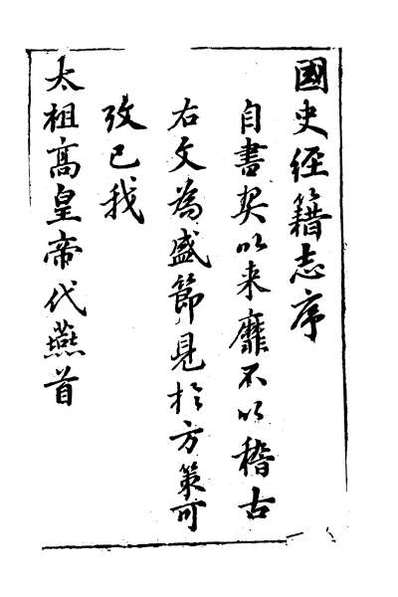 國史經籍志序
自書契以来靡不以稽古
右文為盛節見扵方策可
攷已我
太祖高皇帝代燕首